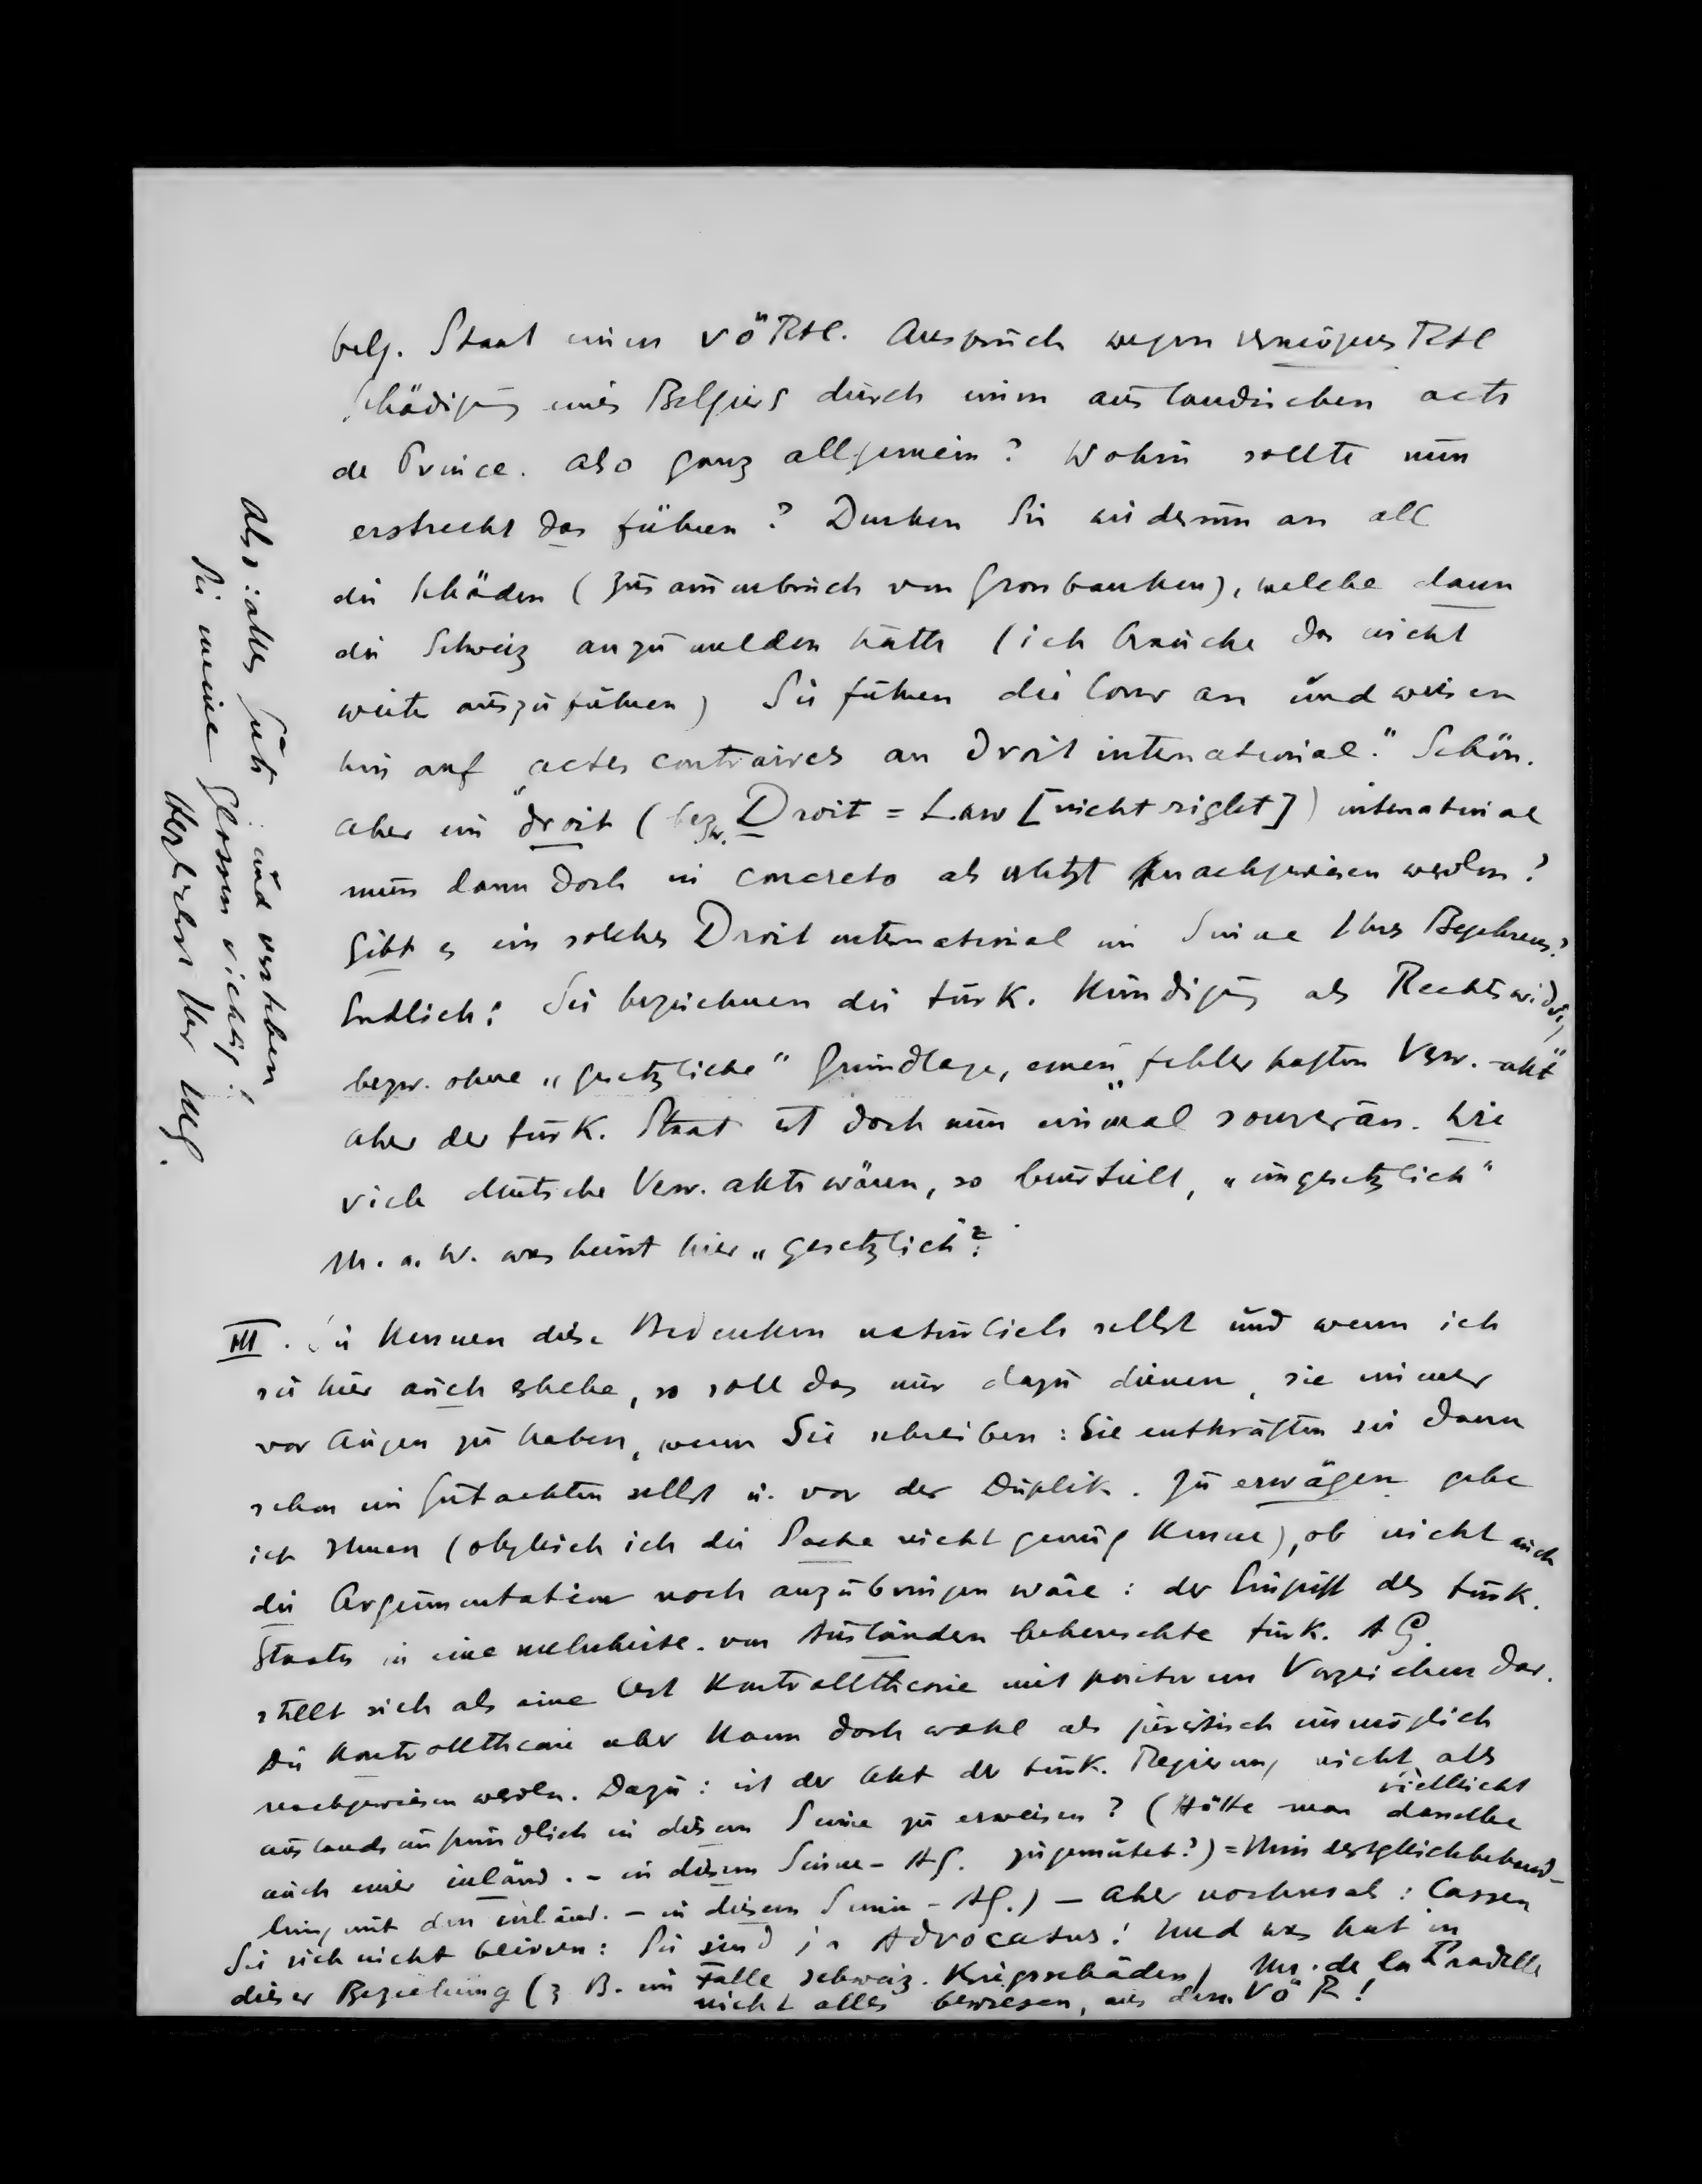 belg. Staat einen VöRtl. Anspruch wegen vermögensRtl
Schädigung eines Belgiers durch einen ausländischen acte
de Prince. Also ganz allgemein? Wohin sollte nun
erstrecht das führen? Denken Sie wiederum an all
die Schäden (Zusammenbruch von Grossbanken), welche dann
die Schweiz anzumelden hätte (ich brauche das nicht
weiter auszuführen) Sie führen die Cour an und weisen
hin auf „actes contraires au droit international." Schön.
Aber ein droit (bezw. Droit = Law [nicht right]) international
muss dann doch in concreto als verletzt nachgewiesen werden?
Gibt es ein solches Droit international im Sinne Ihres Begehrens?
Endlich: Sie bezeichnen die türk. Kündigung als Rechtswidrig,
bezw. ohne „gesetzliche" Grundlage, einen „fehlerhaften Verw.-akt"
Aber der türk. Staat ist doch nun einmal souverän. Wie
viele deutsche Verw. akte wären, so beurteilt, „ungesetzlich"
M. a. W. was heisst hier „gesetzlich"?
III. Sie kennen diese Bedenken natürlich selbst und wenn ich
sie hier auch erhebe, so soll das nur dazu dienen, sie immer
vor Augen zu haben, wenn Sie schreiben: Sie entkräften sie dann
schon im Gutachten selbst u. vor der Duplik. Zu erwägen gebe
ich Ihnen (obgleich ich die Sache nicht genug kenne), ob nicht auch
die Argumentation noch anzubringen wäre: der Eingriff des türk.
Staates in eine mehrheitl. von Ausländern beherrschte türk. AG.
stellt sich als eine Art Kontrolltheorie mit Vorzeichen dar.
Die Kontrolltheorie aber kann doch wohl als juristisch unmöglich
nachgewiesen werden. Dazu: ist der Akt der türk. Regierung nicht als
auslandsunfreundlich in diesem Sinne zu erweisen? (Hätte man vielleicht dasselbe
auch einer inländ. - in diesem Sinne - AG. zugemutet?) =
lung mit den inländ. - in diesem Sinne - AG.) - Aber nochmals: Lassen
Sie sich nicht beirren: Sie sind ja Advocatus! Und was hat in
dieser Beziehung (z B. im Falle schweiz. Kriegsschäden) Mr. de la Pradelle
nicht alles bewiesen, aus dem VöR!
Also: alles Gute und verstehen
Sie meine Glossen richtig!
Herzlichst Ihr